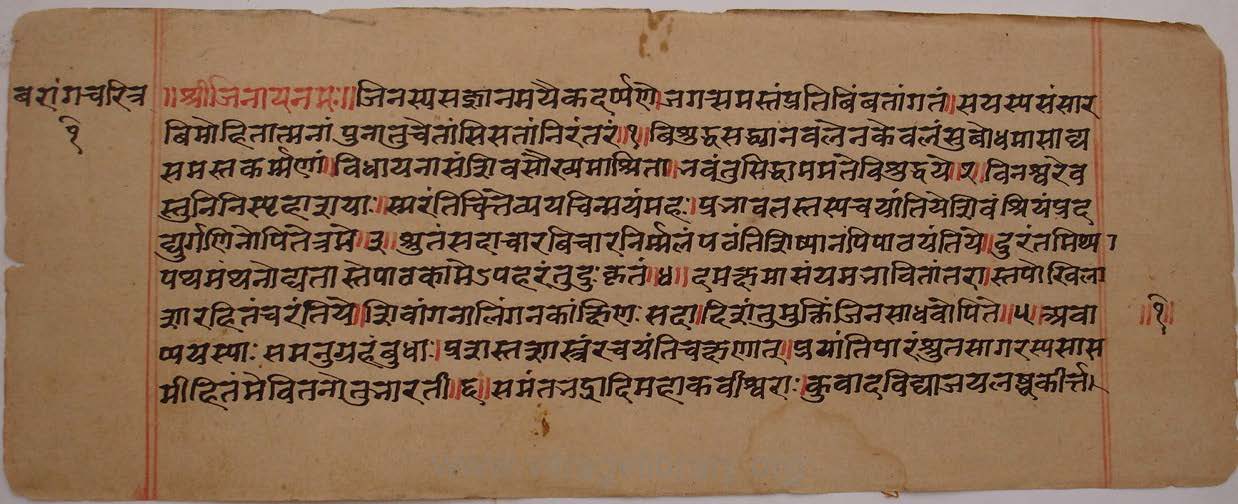 बरांगचरित्र
१
॥श्रीजिनायनमः॥जिनस्यसज्ज्ञानमयैकदर्प्पणेजगत्समस्तंप्रतिबिंबतांगतं॥सयस्यसंसार
विमोहितात्मनां पुनातुचेतांसिसतांनिरंतरं॥१॥विशुद्धसद्ध्यानबलेनकेवलंसुबोधमासाद्य
समस्तकर्म्मणां॥विधायनासंशिवसौख्यमाश्रिता॥भवंतुसिद्धाममतेविशुद्धये॥२॥विनश्वरेव
स्तुनिनिस्पृहाशयाः॥स्मरंतिचित्तेव्ययचिन्मयंमहः॥प्रभावतस्तस्यचयांतियेशिवं श्रियंप्रद
द्युर्गणिनोपितेत्रमे॥३॥श्रुतंसदाचारविचारनिर्म्मलंपठंतिशिष्यानपिपाठयंतिये॥दुरंतमिथ्या
पथमंथनोद्यतास्तेपाठकामेऽपहरंतुदुःकृतं॥४॥दमक्षमासंयमभावितांतरा॥स्तपोखिला
शारहितंचरंतिये॥शिवांगनालिंगनकांक्षिणः सदा॥दिशंतुमुक्तिंजिनसाधवोपिते॥५॥अवा
प्ययस्याः समनुग्रहंबुधाः॥प्रशस्तशास्त्रंरचयंतिचक्षणात्॥प्रयांतिपारंश्रुतसागरस्यसास
मीहितंमेवितनोतुभारती॥६॥समंतभद्रादिमहाकवीश्वराः॥कुवादविद्याजयलब्धकीर्त्त
॥१॥